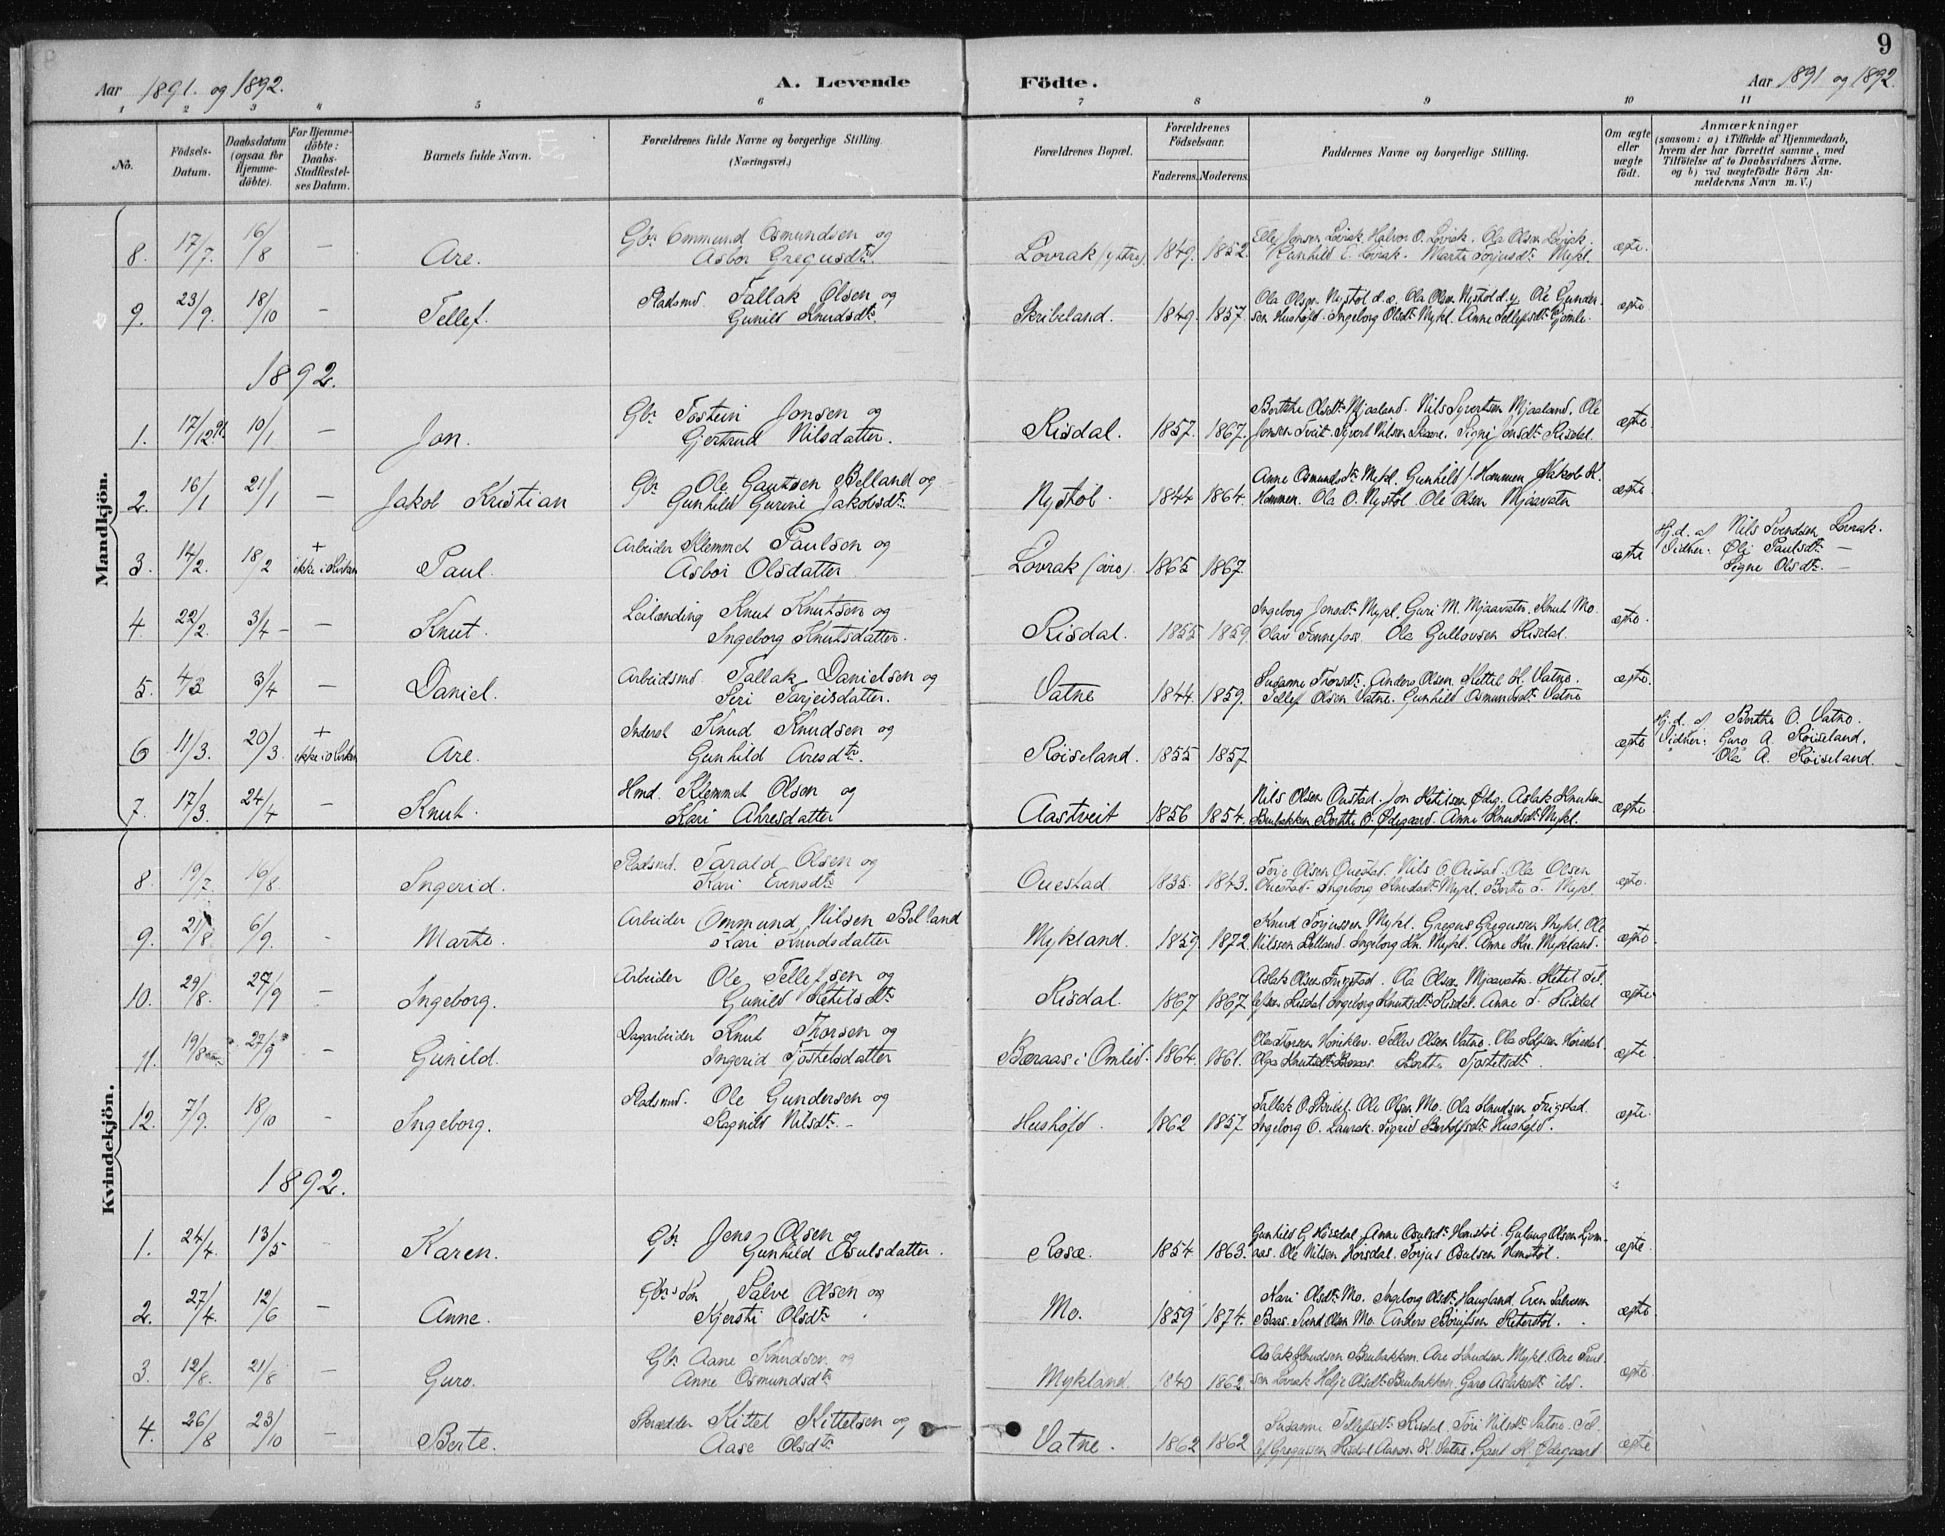 9
Aar 1891. og 1892. A. Levende Födte. Aar 1891 og 1892.
1 2 3 4 5 6 7 8 9 10 11
No. Födsels-Datum. Daabsdatum (ogsaa for Hjemme-döbte). For Hjemme-döbte: Daabs-Stadfæstel-ses Datum. Barnets fulde Navn. Forældrenes fulde Navne og borgerlige Stilling. (Næringsvei.) Forældrenes Bopæl. Forældrenes Födselsaar. Faderens. Moderens. Faddernes Navne og borgerlige Stilling. Om ægte eller uægte födt. Anmærkninger (saasom: a) i Tilfælde af Hjemmedaab, hvem der har forrettet samme, med Tilföielse af to Daabsvidners Navne. og b) ved uægtefödte Börn An-melderens Navn m. V.)
Mandkjön.
8. 17/7. 16/8 — Are. Gbr. Ommund Osmundsen og Asbor Gregusdtr. Lovrak (yttre) 1849. 1852. Ellef Jonsen Lovrak. Halvor O. Lovrak. Ola Olsen Lovrak. Gunhild E. Lovrak. Marte Torjusdtr Mykl. ægte.
9. 23/9. 18/10 — Tellef. Pladsmd. Tallak Olsen og Gunild Knudsdtr. Skribeland. 1849. 1857. Ola Olsen Nystöl d. æ. Ola Olsen Nystöl d. y. Ole Gunder-sen Hushöld. Ingeborg Olsdtr Mykl. Anne Tellefsdtr Gjömle. ægte
1892.
1. 17/12 91. 10/1 — Jon. Gbr. Tostein Jonsen og Gjertrud Nilsdatter. Risdal. 1857. 1867. Berthe Olsdtr Mjaaland. Nils Syvertsen Mjaaland. Ole Jonsen Tveit. Syvert Nilsen Skaare. Signe Jonsdtr Risdal. ægte.
2. 16/1 21/1 — Jakob Kristian Gbr. Ole Gautsen Belland og Gunhild Gurine Jakobsdtr. Nystöl. 1844 1864. Anne Osmundsdtr Mykl. Gunhild J. Hommen. Jakob K. Hommen. Ola O. Nystöl. Ole Olsen Mjaavatn ægte.
3. 14/2. 18/2 + ikke i Kirken Paul. Arbeider Klemmet Paulsen og Asbor Olsdatter Lovrak (övre). 1865 1867. ægte Hj. d. af Nils Svendsen Lovrak. Vidner: Oli Paulsdtr — Signe Olsdtr. —
4. 22/2. 3/4 — — Knut. Leilænding Knut Knutsen og Ingeborg Knutsdatter. Risdal. 1855 1859 Ingeborg Jonsdtr Mykl. Guri M. Mjaavatn. Knut Mo. Olav Tonnefos. Ola Gullovsen Risdal. ægte.
5. 4/3 3/4 — Daniel. Arbeidsmd. Tallak Danielsen og Siri Tarjeisdatter. Vatne 1844. 1859. Susanne Thorsdtr. Anders Olsen. Kittel K. Vatne. Tellef Olsen Vatne. Gunhild Osmundsdtr Vatne ægte.
6 11/3. 20/3. + ikke i Kirken Are. Inderst Knud Knudsen og Gunhild Aresdtr. Röiseland. 1855 1857 ægte Hj. d. af Berthe O. Vatne. Vidner: Guro A. Röiseland. Ole A. Röiseland.
7. 17/3. 24/4 — Knut. Hmd. Klemmet Olsen og Kari Ahresdatter Aastveit 1856 1854. Nils Olsen Oustad. Jon Ketilsen Ödeg. Aslak Knutsen Brubakken Berthe O. Ödegaard. Anne Knudsdtr Mykl. ægte
Kvindekjön.
8. 19/7. 16/8. Ingerid. Pladsmd. Tarald Olsen og Kari Evensdtr Ouestad 1835. 1843. Torje Olsen Ouestad. Nils O. Oustad. Ola Olsen Ouestad. Ingeborg Knudsdtr Mykl. Berthe T. Mykl. ægte.
9. 21/8. 6/9. - Marte. Arbeider Ommund Nilsen Belland Kari Knudsdatter Mykland. 1859 1872. Knud Torjussen Mykl. Gregus Gregussen Mykl. Ole Nilssen Belland. Ingeborg Kn. Mykl. Anne Kn. Mykland. ægte.
10. 29/8. 27/9 — Ingeborg. Arbeider Ole Tellefsen og Gunild Ketilsdtr Risdal. 1867 1867. Aslak Olsen Frigstad. Ola Olsen Mjaavatn. Ketil Tel-lefsen Risdal Ingeborg Knutsdtr Risdal. Anne T. Risdal ægte.
11. 19/8 27/9 — Gunild. Dagarbeider Knut Thorsen og Ingerid Tjostelsdatter Baraas i Omlid. 1864. 1861. Ola Torsen Tellev Olsen Vatne. Berthe Tjostelsdtr. ægte.
12. 7/9. 18/10 - Ingeborg. Pladsmd. Ole Gundersen og Ragnild Nilsdtr. - Hushöld. 1862 1857 Tallak O. Skribel. Ole Olsen Mo. Ola Knudsen Frigstad. Ingeborg O. Laurak. Sigrid Hushöld. ægte.
1892.
1. 24/4 13/5 - Karen. Gbr. Jens Olsen og Gunhild Osulsdatter. Rosæ. 1854 1863. Gunhild G. Hörsdal. Anne Osulsdtr Homstöl. Gulaug Olsen Ljom-aas. Ole Nilsen Horsdal. Torjus Osulsen Homstöl. ægte.
2. 27/4. 12/6 — Anne. Gbr. Sön Salve Olsen og Kjersti Olsdtr. Mo. 1859 1874. Kari Olsdtr Mo. Ingeborg Olsdtr Haugland. Even Salvesen Baas. Svend Olsen Mo. Anders Börufsen Seterstöl. ægte
3. 12/8. 21/8 — Guro. Gbr. Aane Knudsen og Anne Osmundsdtr Mykland 1840 1862. Aslak Knudsen Brubakken. Are Knudsen Mykl. Are Paul-sen Lovrak Helje Olsdtr Brubakken. Guro Aslaksdtr ibd. ægte
4. 26/8 23/10 — Berte. Skrædder Kittel Kittelsen og Aase Olsdtr Vatne. 1862 1862 Susanne Tellefsdtr Risdal. Siri Nilsdtr Vatne. Tel-lef Gregussen Risdal Aanon K. Vatne. Gaut K. Ödegaard ægte